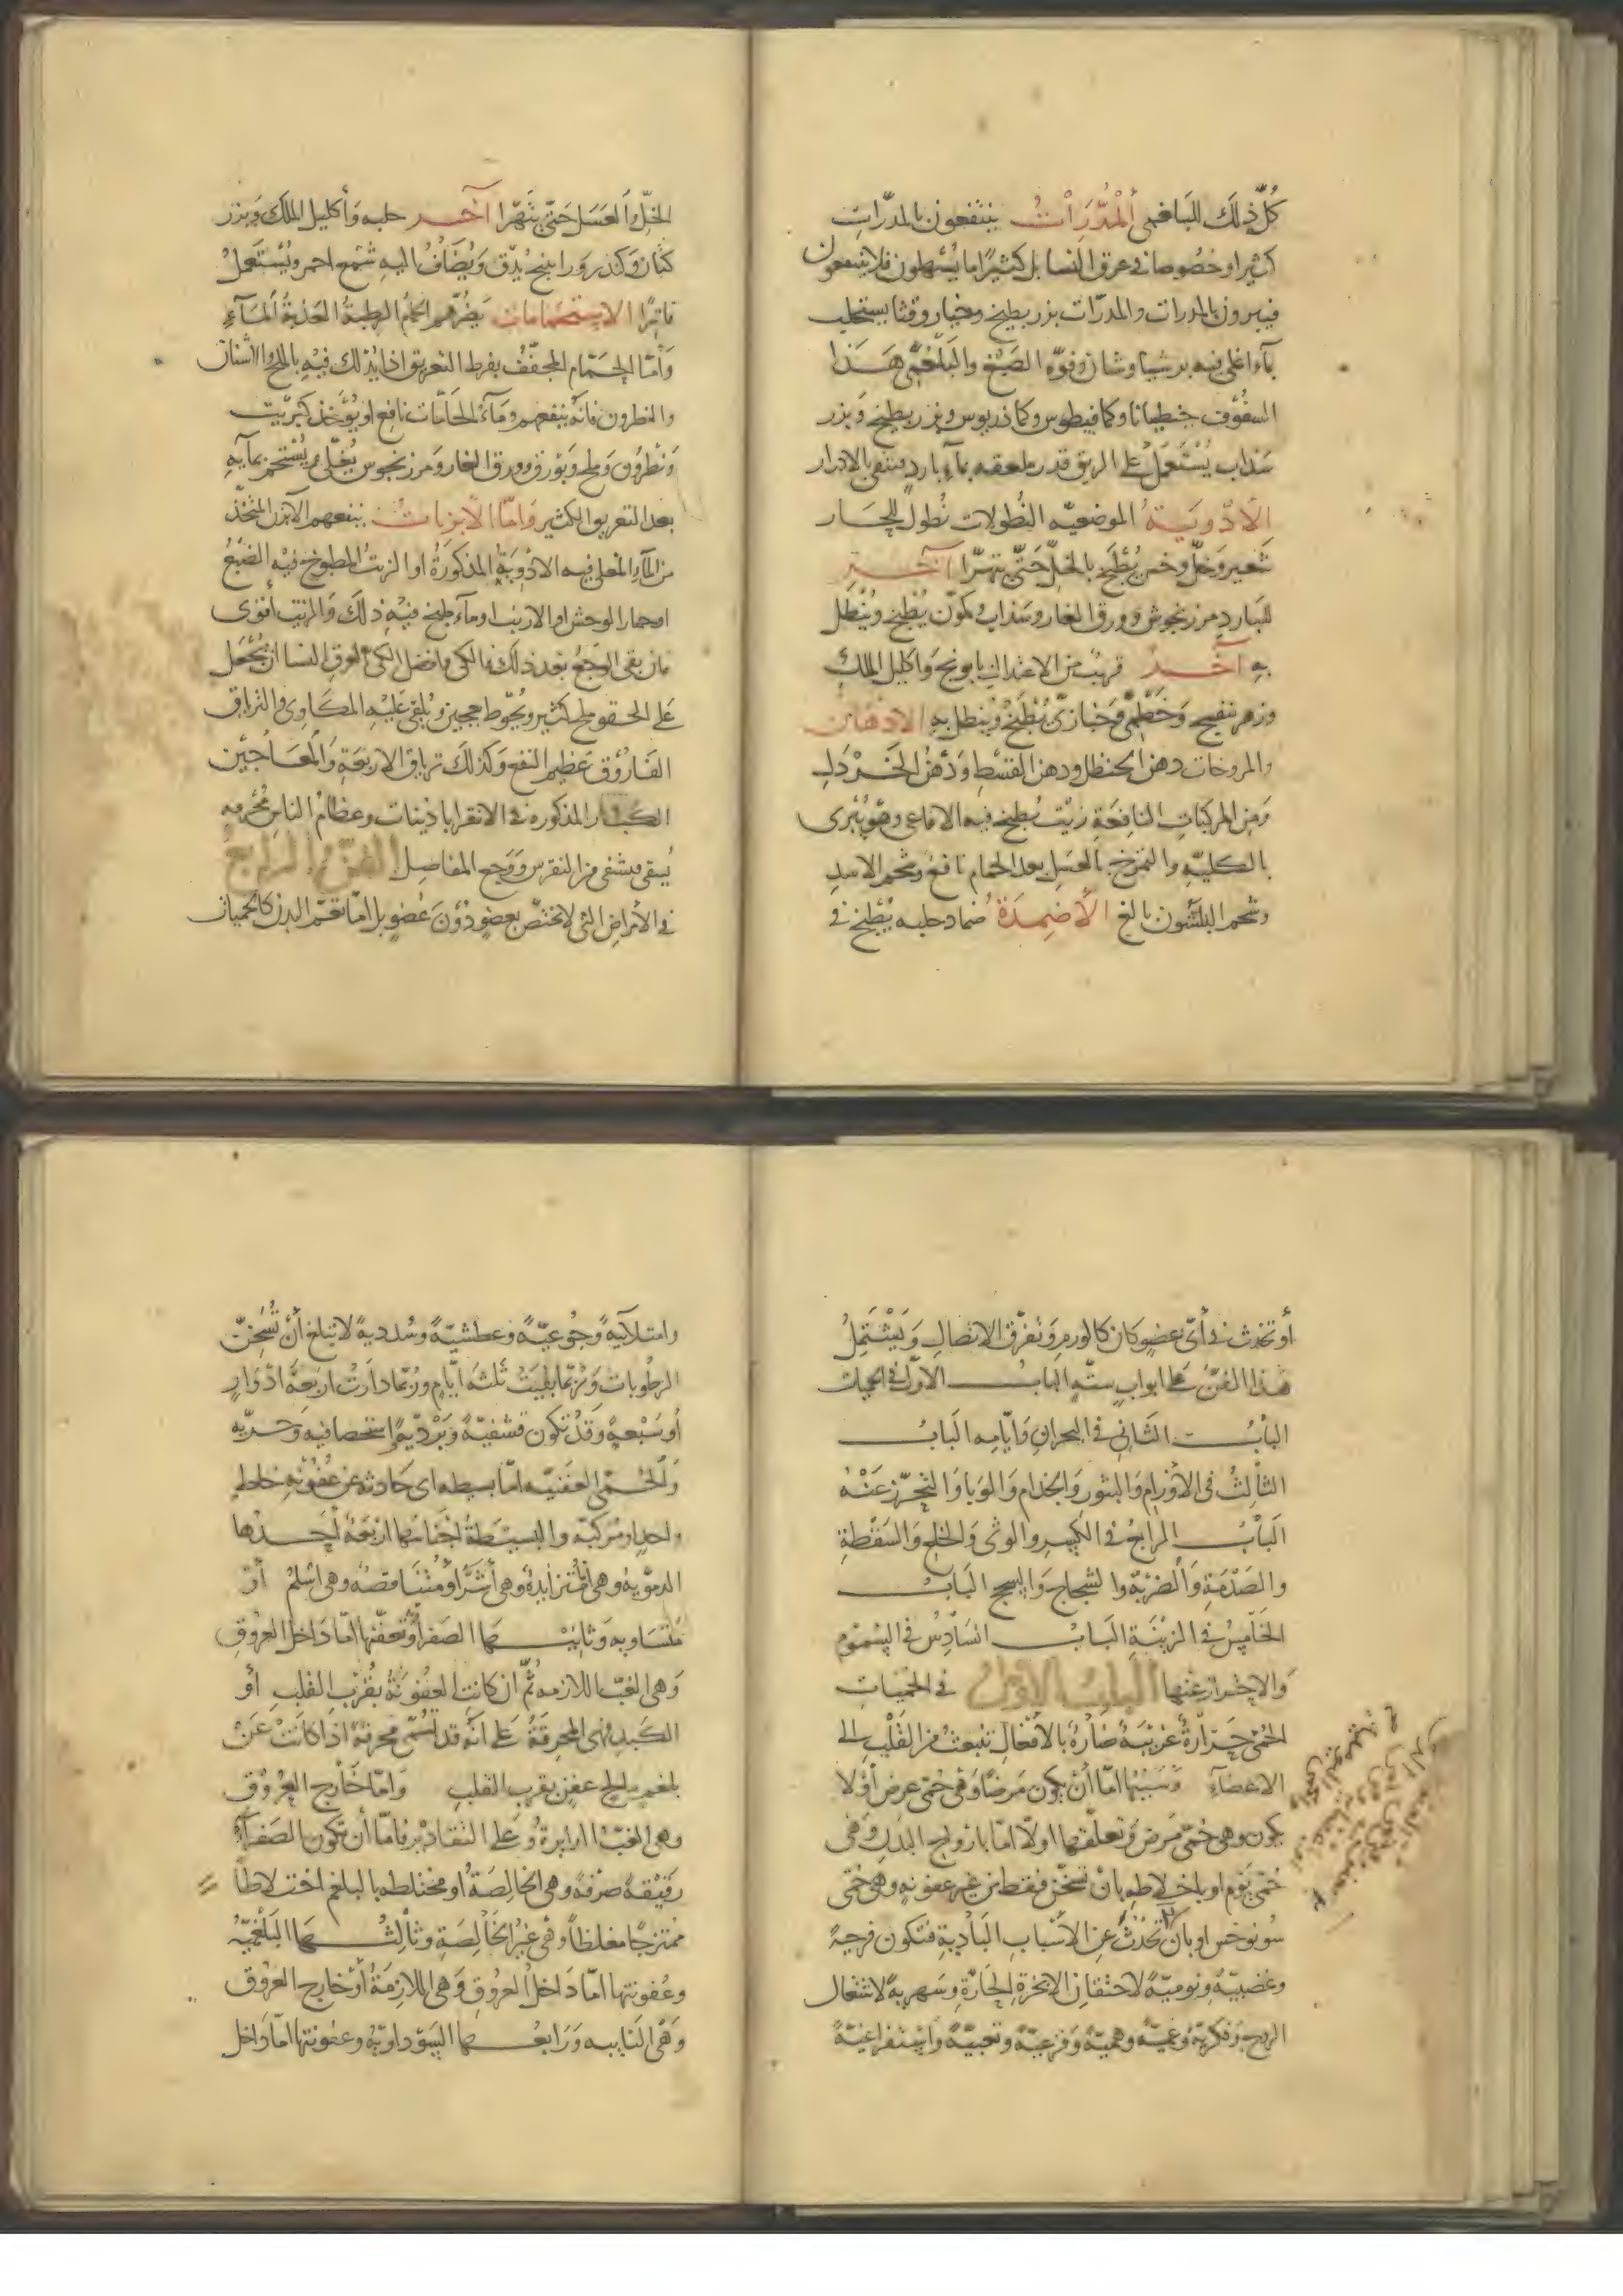 كُلّ ذلك للبلغمى المُدِّرَاتُ ينتفعون بالمدرّات
كثيرا وخصُوصا فى عرق النسا بل كثيرًا ما يُسْهلون فلا ينتفعون
فيبرون بالمدرات والمدرّات بزر بطيخ وخيار وقثا يستحلب
بماء اغلى فيه برشياوشان وفوّه الصَبْغ والبَلْغَمى هَذا
السفُوُف جنطيانا وكمافيطوس وكماذريوس وبزر بطيخ وَبزر
سَذاب يُسْتَعمَل على الريق قدر ملعقه بماء بارد فينقى بالادرار
الأدْويَةُ الموضعيّه النُطولات نُطول للحَار
شَعير وَخلّ وخس يُطْبَخ بالخلّ حَتّى يتهرّا آخَر
للبَاردِ مرزنجوش وورق الغار وسَذاب وكمّون يُطْبَخ وَيُنْطَل
بِهِ آخَرُ قريبٌ من الاعتدال بابونج وَاكليل الملك
وزهر بنفسج وَخَطْمى وَخبازى يُطْبَخُ وَينطل بِهِ الادْهَان
والمروخات دهن الحنظل ودهن القسْطِ وَدُهْنُ الخَرْدَلِ
وَمِن المركباتِ النافِعَةِ زيْت يُطبخ فيه الافاعى وهوَ يُبْرى
بالكليّه والتمرّخ بالعَسَل بعد الحمام نافع وشحم الاسدِ
وشحم البلشون بالغ الأَضمِدَة ضماد حلبه يُطْبَخ فى
الخلّ وَالعَسَل حَتّى يتَهَرّا آخَر حلبه وَأكليل الملك وَبزر
كتان وَكندر وَراتينج يُدَقّ وَيُضَافُ اليهِ شَمْع احمر ويُسْتَعمَلُ
فاترًا الاستحمامات يَضُرّهم الحمّام الرطبةُ العَذبَةُ المَآءِ
وَأمّا الحَمّام المجَفّفُ بفرط التعريق اذا يُدْلك فيْه بالملح والاشنان
والنطرون فانّهُ ينفعهم وَمَآءُ الحَمّات نافع او يُؤخَذ كبرْيت
وَنَطْرُون وَملح وَبَوْرق وورق الغار وَمرزنجوس يُغلّى وَيُسْتَحم بمآيِهِ
بعد التعريق الكثير وَامّا الأبزنات ينفعهم الآبزن المتّخَذ
من المآءِ المغلى فيه الادْويَةُ المذكورَةُ او الزيت المطبوخ فيْهِ الضَبُعُ
او حمار الوحش او الارنب او مآء طبخ فيْهِ ذلَك وَالزيْت أقوى
فان بَقى الوَجعُ بَعْدَ ذلك فالكى وَافضل الكى لعرق النسا ان يُجْعَل
على الحقو ملح كثير ويُحَوّط بعجين ويُلقى عَليْهِ المكاوى والترياق
الفَارُوق عَظيْم النفع وَكذلَك ترياق الاربَعَةِ وَالمَعَاجيْن
الكبار المذكوره فى الاقراباذينات وعظام الناس مُحَرّقه
يُسقى فيشفى من النقرس وَوَجع المفاصل الفنّ الرابع
فى الأمراض التى لا تختصّ بعضو دُوْنَ عُضوٍ بل امّا تعمّ البدن كالحميات
أو تحدث فى أىّ عضو كان كالورم وَتفرّق الاتصال وَيَشْتَمِلُ
هَذا الفنّ على ابوابٍ ستّه البابُ الاوّل فى الحميات
البَابُ الثَانى فى البحران وَايّامِه البَابُ
الثاْلثُ فى الأوْرام وَالبثور وَالجذام وَالوَباء وَالتَحرّز عَنْهُ
البَابُ الرابعُ فى الكسر والوثى وَالخلع وَالسَقْطةِ
والصَدْمَةِ وَالضَرْبَه والشجاج وَالسحج البَابُ
الخَامسُ فى الزيْنَةِ البَابُ السَادِسُ فى السُمُوم
وَالاحْتراز عَنْها البَابُ الاوّل فى الحُميَاتِ
الحُمّى حَرَارةٌ غَريْبَةٌ ضَارّةٌ بالأفْعَالِ تنبعثُ من القَلْبِ الى
الاعضاءِ وَسَبَبُهَا امّا أنْ يكون مَرَضًا وَهى حُمّى عرض أوْ لا
يكون وهى حُمّى مَرَض وَتعلّقها اوّلا امّا بأرْواح البدن وَهى
حُمّى يَوْم او باخلاطِهِ بانْ تسخن فقط من غير عفونهٍ وهى حُمّى
سُونوخس او بان تحْدُثَ عن الأسْباب البَادِيةِ فتكون فرحيةً
وغضبيّةً ونوميّةً لاحتقان الابْخرةِ الحَارّةِ وَسَهريةً لاشتغال
الروح وَفكريّةً وَغميّةً وَهميّةً وَفزعيّةً وتعبيّةً وَاسْتفراغيّةً
وامتلائيةً وَجُوعيّةً وعطشيّةً وسُدديةً لا تبلغ أنْ تُسَخِّنَ
الرطُوبات وَرُبّما بقيَتْ ثَلثَه أيّامٍ وَرُبّما دَارَتْ أربَعَة ادْوَارٍ
أوْ سَبْعهً وَقدْ تكون قشفيّةً وَبَرْديّةً استحصافيه وَحَرّيّه
وَالحُمّى العفنيّه امّا بسيطه اى حَادثه عن عُفُوْنَةِ خلط
واحد او مُركّبه والبسيْطةُ اجناسُها ارْبَعةٌ أحَدُها
الدمَويّهُ وهى امّا متزايدةٌ وهى أشَرُّ او مُتَنَاقصَهٌ وهى اسْلمُ أوْ
مُتسَاويه وَثَانيْها الصَفراويّه وَعفنُها امّا دَاخلَ العُرُوق
وَهى الغبّ اللازمه ثُمّ ان كانت العفُونَةُ بقُرْب القلب أوْ
الكَبدِ فهى المُحرقَةُ عَلى انّهُ قد تُسَمّى مُحرقةً اذا كانَتْ عَنْ
بلغمٍ مالحٍ عفنٍ بقرب القلب وَامّا خَارج العُرُوق
وهى الغبّ الدايرة وَعَلى التقاديْر فامّا أن تكون الصَفرآءُ
رَقيْقةً صرْفةً وهى الخالِصَةُ او مُختلطه بالبلغم اخْتلاطاً
مُمْتزجًا مغلظاً وَهى غيْر الخَالِصَةِ وثَالثُها البَلْغميّهُ
وعُفونتها امّا دَاخلَ العُرُوق وَهى اللازمَةُ أوْ خارج العُرُوق
وَهى النَايبه وَرَابعُها السَوْداويّهُ وعفونتها امّا دَاخل